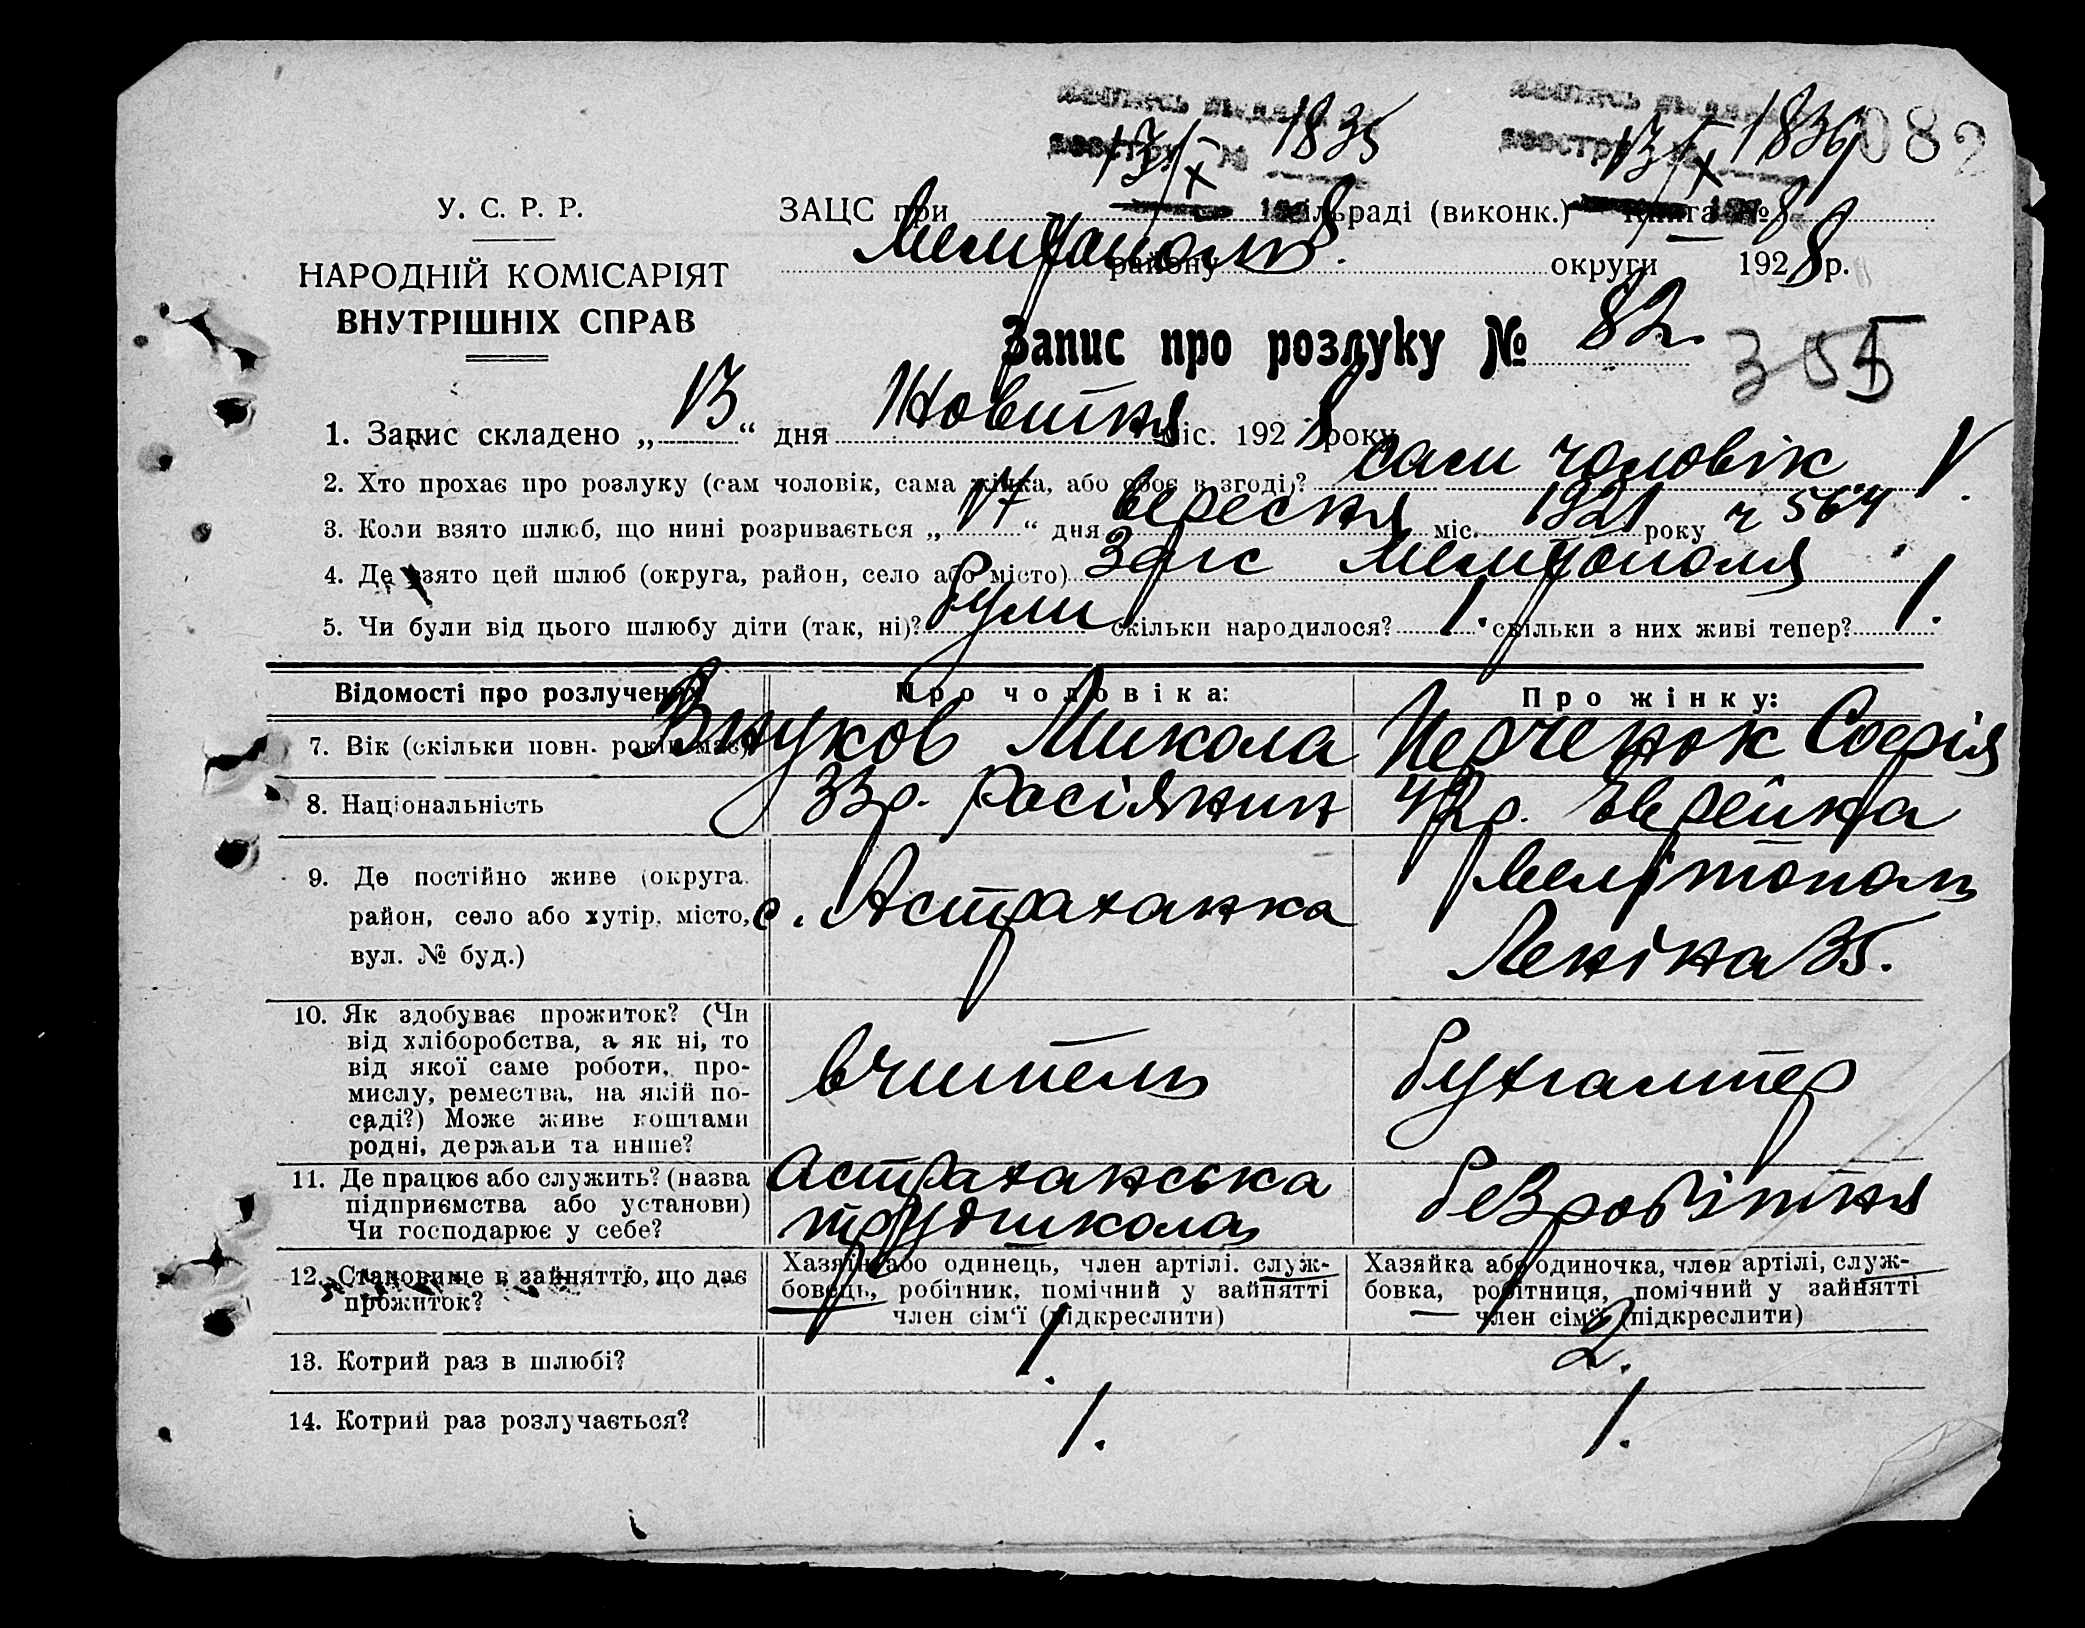 1835
1836
082
13/X
13/X
У. С. Р. Р.
ЗАЦС при сільраді (виконк.) Книга №
Мелітополь
району округи 1928 р.
НАРОДНІЙ КОМІСАРІЯТ
ВНУТРІШНІХ СПРАВ
Запис про розлуку № 82.
355
1. Запис складено „13“ дня Жовтня міс. 1928 року
2. Хто прохає про розлуку (сам чоловік, сама жінка, або обоє в згоді)? сам чоловік V.
3. Коли взято шлюб, що нині розривається „17“ дня вересня міс. 1921 року ч 564
4. Де взято цей шлюб (округа, район, село або місто) Загс Мелітополя
5. Чи були від цього шлюбу діти (так, ні)? були скільки народилося? 1. скільки з них живі тепер? 1.
Відомості про розлучених Про чоловіка: Про жінку:
Внуков Микола Перченок Софія
7. Вік (скільки повн. років має)
8. Національність 33р. росіянин 42р. Єврейка
9. Де постійно живе (округа, район, село або хутір, місто, вул. № буд.)
с. Астраханка
Мелітополь
Леніна 35.
10. Як здобуває прожиток? (Чи
від хліборобства, а як ні, то
від якої саме роботи, про-
мислу, ремества, на якій по-
саді?) Може живе коштами
родні, держави та инше?
вчитель
бухгалтер
11. Де працює або служить? (назва
підприємства або установи)
Чи господарює у себе?
Астраханська
трудшкола
безробітня
12. Становище в зайняттю, що дає
прожиток?
Хазяїн або одинець, член артілі, служ-
бовець, робітник, помічний у зайнятті
член сім'ї (підкреслити)
Хазяйка або одиночка, член артілі, служ-
бовка, робітниця, помічний у зайнятті
член сім'ї (підкреслити)
13. Котрий раз в шлюбі? 1. 2.
14. Котрий раз розлучається? 1. 1.